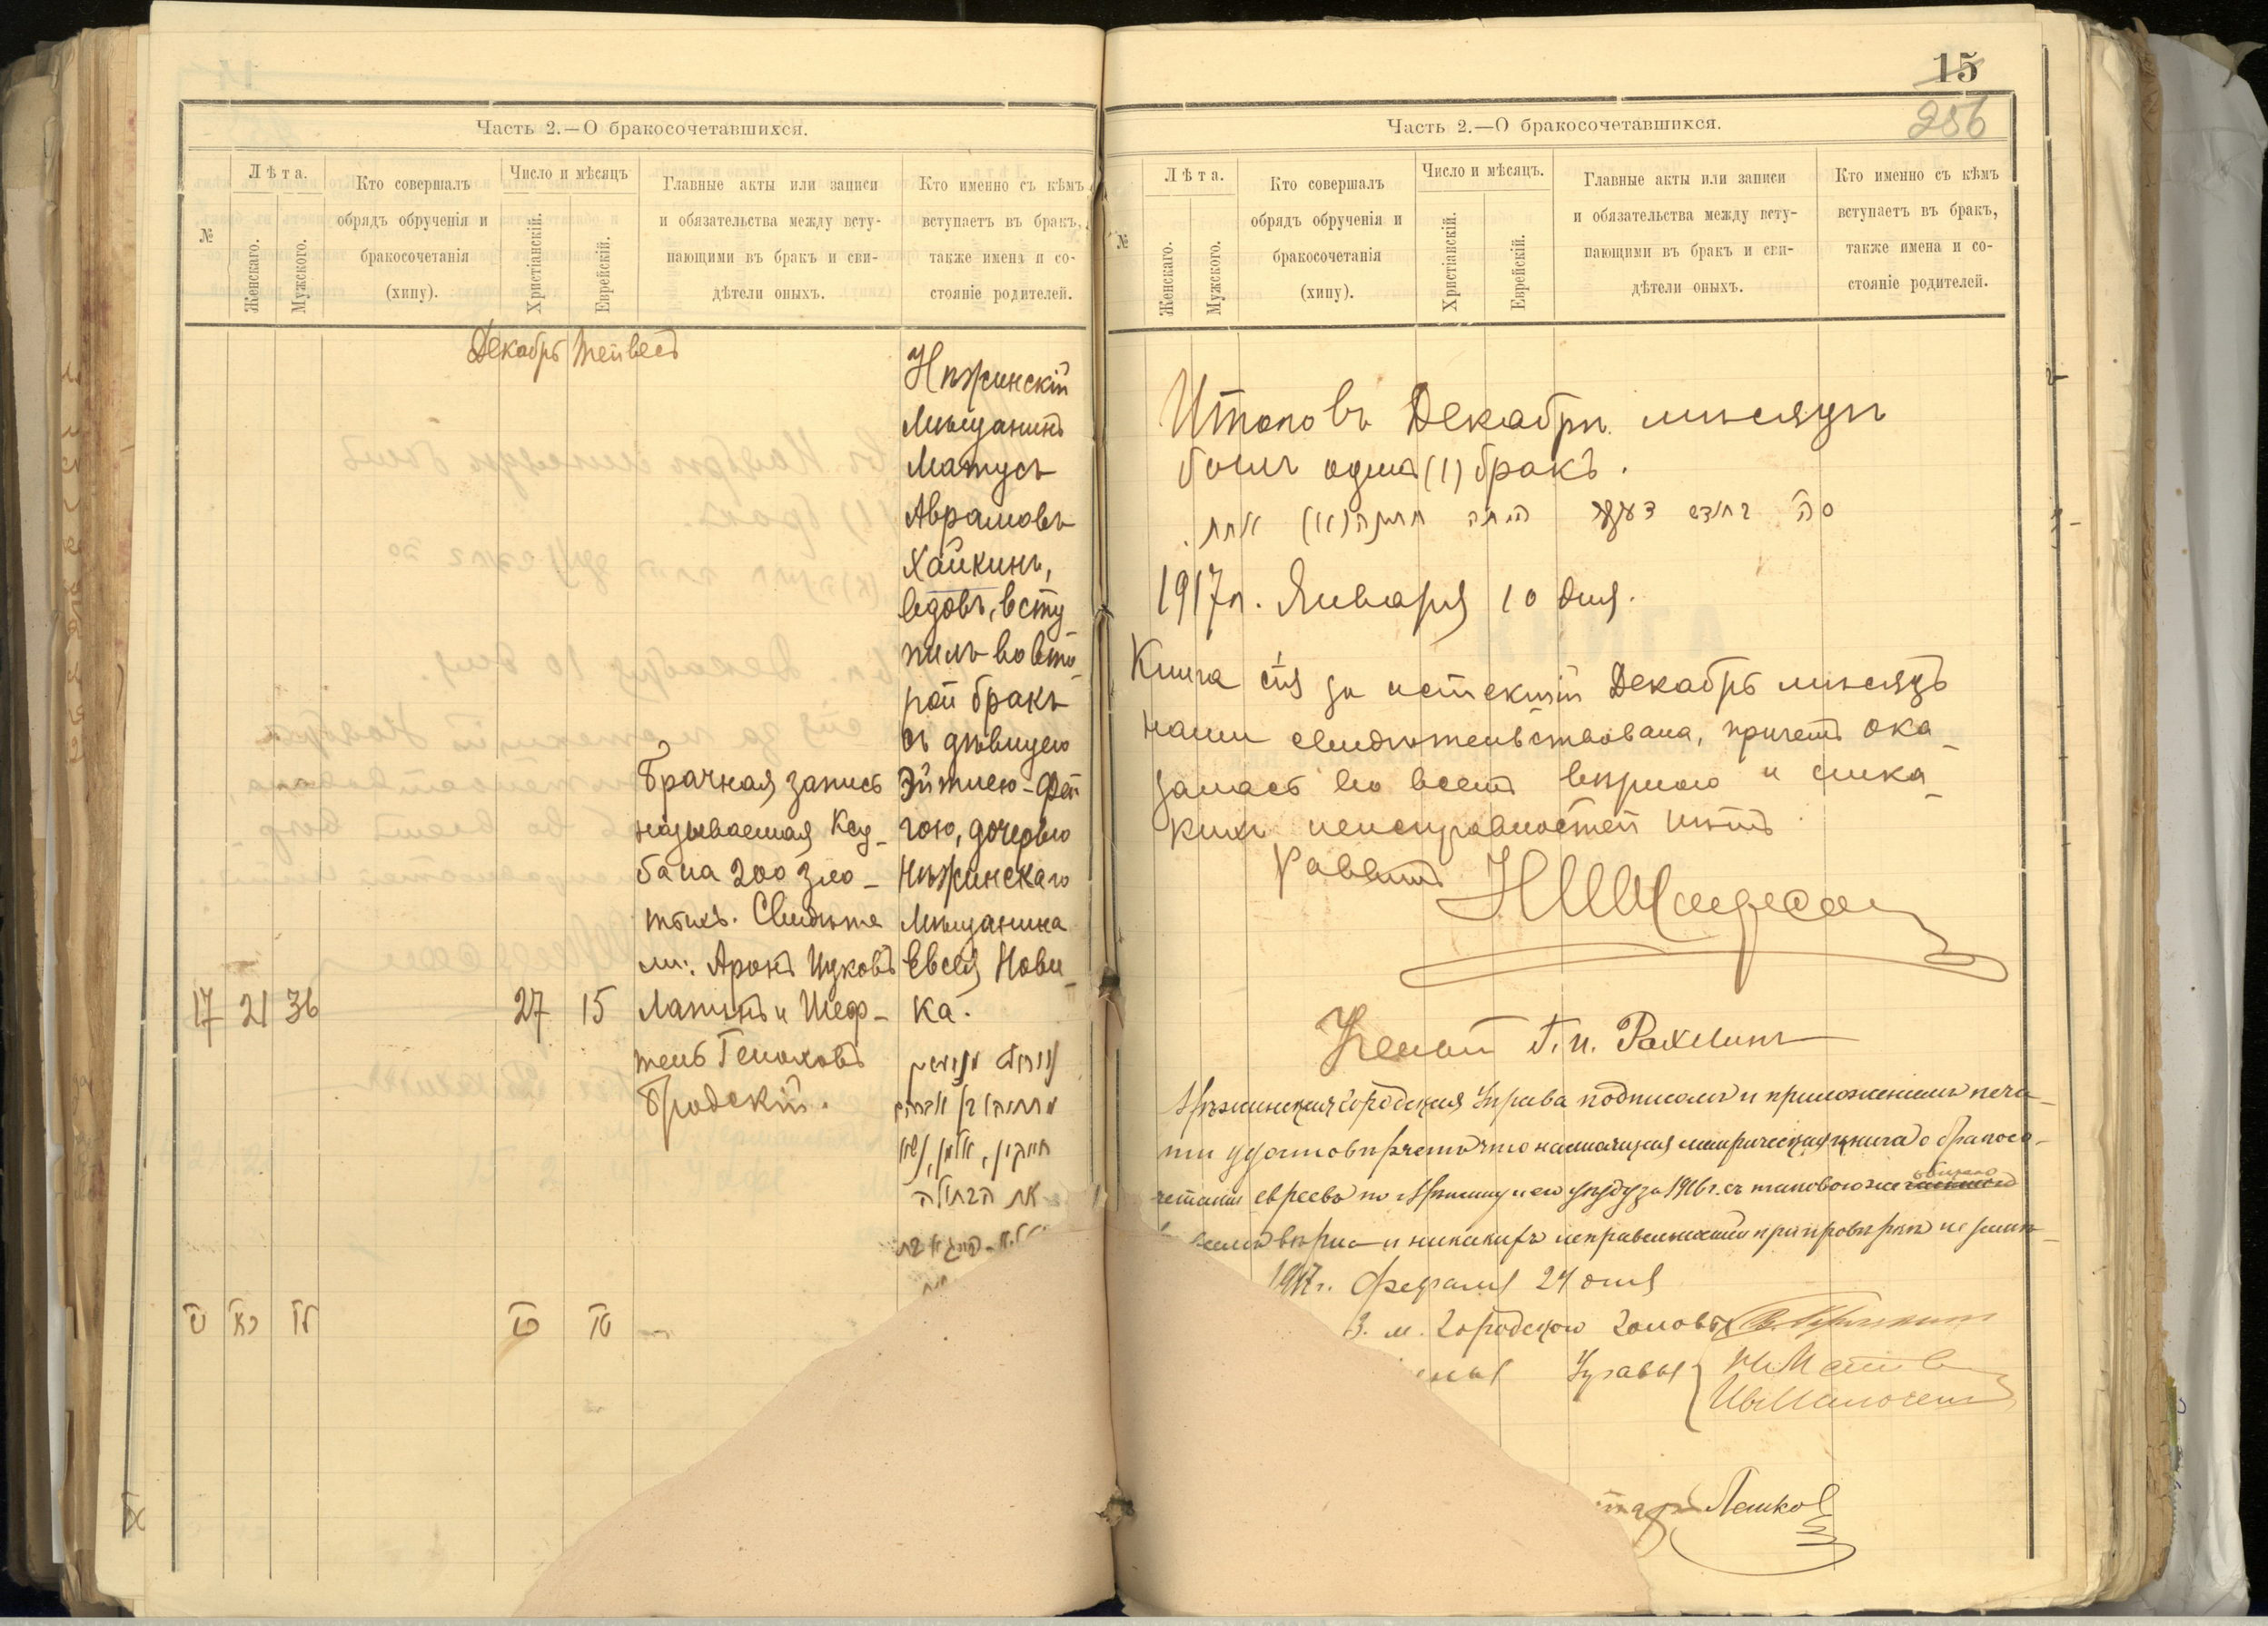 Часть 2.—О бракосочетавшихся.
№
Лѣта.
Женскаго.
Мужского.
Кто совершалъ
обрядъ обрученія и
бракосочетанія
(хипу).
Число и мѣсяцъ
Христіанскій.
Еврейскій.
Главные акты или записи
и обязательства между всту-
пающими въ бракъ и сви-
дѣтели оныхъ.
Кто именно съ кѣмъ
вступаетъ въ бракъ,
также имена и со-
стояніе родителей.
Декабрь Тейвесъ
17 21 36 27 15
Брачная запись
называемая Ксу-
ба на 200 зло-
тыхъ. Свидѣте
ли: Аронъ Ицковъ
Лапинъ и Шеф-
тель Геноховъ
Бродскій.
Нѣжинскій
Мѣщанинъ
Матусъ
Аврамовъ
Хайкинъ,
вдовъ, всту
пилъ во вто
рой бракъ
съ дѣвицею
Эйтлею-Фей
гою, дочерью
Нѣжинскаго
Мѣщанина
Евсея Нови-
ка.
חייקין, אלמן, נשא
את הבתולה
15
256
Часть 2.—О бракосочетавшихся.
№
Лѣта.
Женскаго.
Мужского.
Кто совершалъ
обрядъ обрученія и
бракосочетанія
(хипу).
Число и мѣсяцъ.
Христіанскій.
Еврейскій.
Главные акты или записи
и обязательства между всту-
пающими въ бракъ и сви-
дѣтели оныхъ.
Кто именно съ кѣмъ
вступаетъ въ бракъ,
также имена и со-
стояніе родителей.
Итого въ Декабрѣ мѣсяцѣ
былъ одинъ (1) бракъ.
1917 г. Января 10 дня.
Книга сія за истекшій Декабрь мѣсяцъ
нами свидѣтельствована, причемъ ока-
залась во всемъ вѣрною и ника-
кихъ неисправностей нѣтъ.
Раввинъ
Ученый Г. И. Рахлинъ
Нѣжинская Городская Управа подписомъ и приложеніемъ печа-
ти удостовѣряетъ что настоящая метрическая книга о бракосо-
четаніи евреевъ по г. Нѣжину и его уѣзду за 1916 г. съ таковою же
вѣрна и никакихъ неправильностей при провѣркѣ не
1917 г. Февраля 24 дня
З. м. Городского Головы
Управы
Лешко